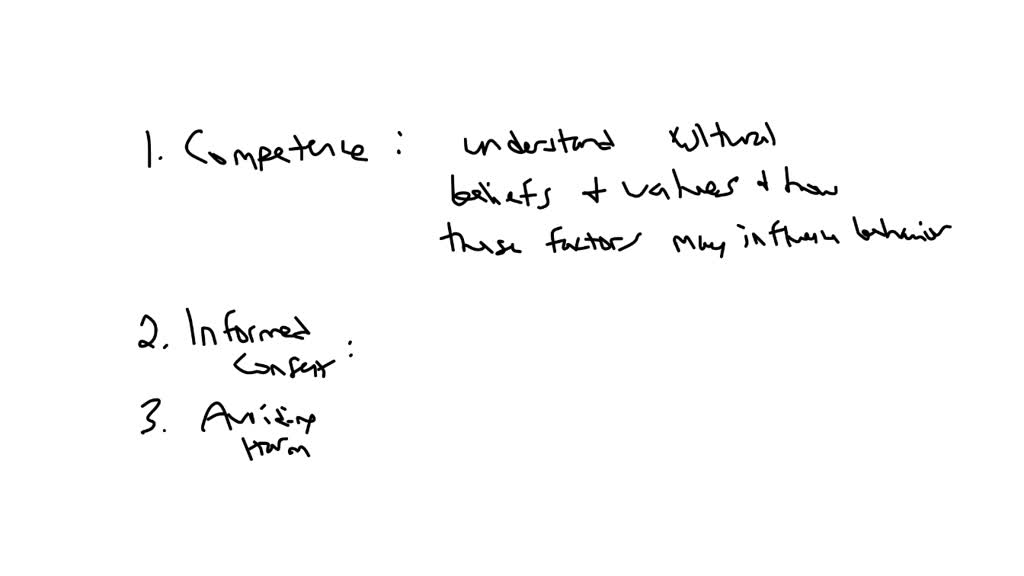 1. Competence : understand cultural
beliefs + values + how
these factors may influence behavior
2. Informed
Consent :
3. Avoiding
Harm